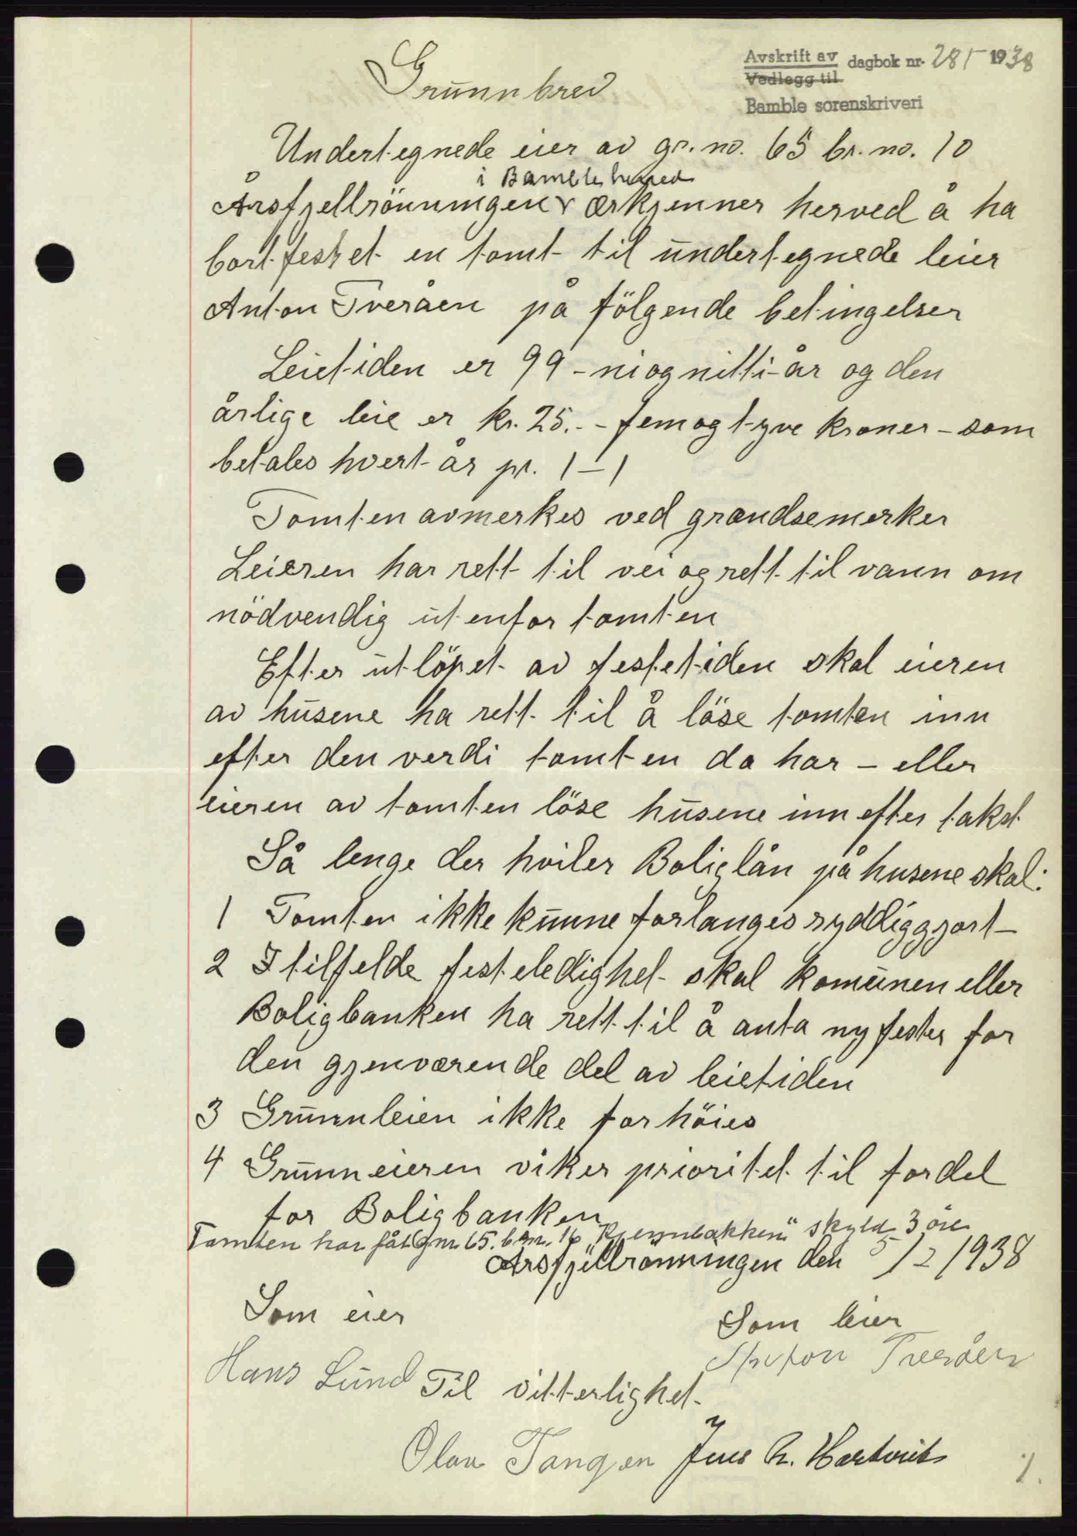 Avskrift av dagbok nr. 285 1938
Vedlegg til
Bamble sorenskriveri
Grunnbrev
Undertegnede eier av gr. no. 65 br. no. 10
i Bamble herred
Årsfjellrönningen erkjenner herved å ha
bortfestet en tomt til undertegnede leier
Anton Tveråen på fölgende betingelser
Leietiden er 99 - niognitti - år og den
årlige leie er kr. 25.- - femogtyve kroner - som
betales hvert år pr. 1-1
Tomten avmerkes ved grændsemerker
Leieren har rett til vei og rett til vann om
nödvendig utenfor tomten
Efter utlöpet av festetiden skal eieren
av husene ha rett til å löse tomten inn
efter den verdi tomten da har - eller
eieren av tomten löse husene inn efter takst
Så lenge der hviler Boliglån på husene skal:
1 Tomten ikke kunne forlanges ryddiggjort -
2 I tilfelde festeledighet skal komunen eller
Boligbanken ha rett til å anta ny fester for
den gjenværende del av leietiden
3 Grunnleien ikke forhöies
4 Grunneieren viker prioritet til fordel
for Boligbanken
Tomten har fåt gnr. 65. bnr. 16 "Kjennbakken" skyld 3 öre
Årsfjellrönningen den 5/2 1938
Som eier
Som leier
Hans Lund
Anton Tveråen
Til vitterlighet.
Olav Tangen Jens R. Hartvik